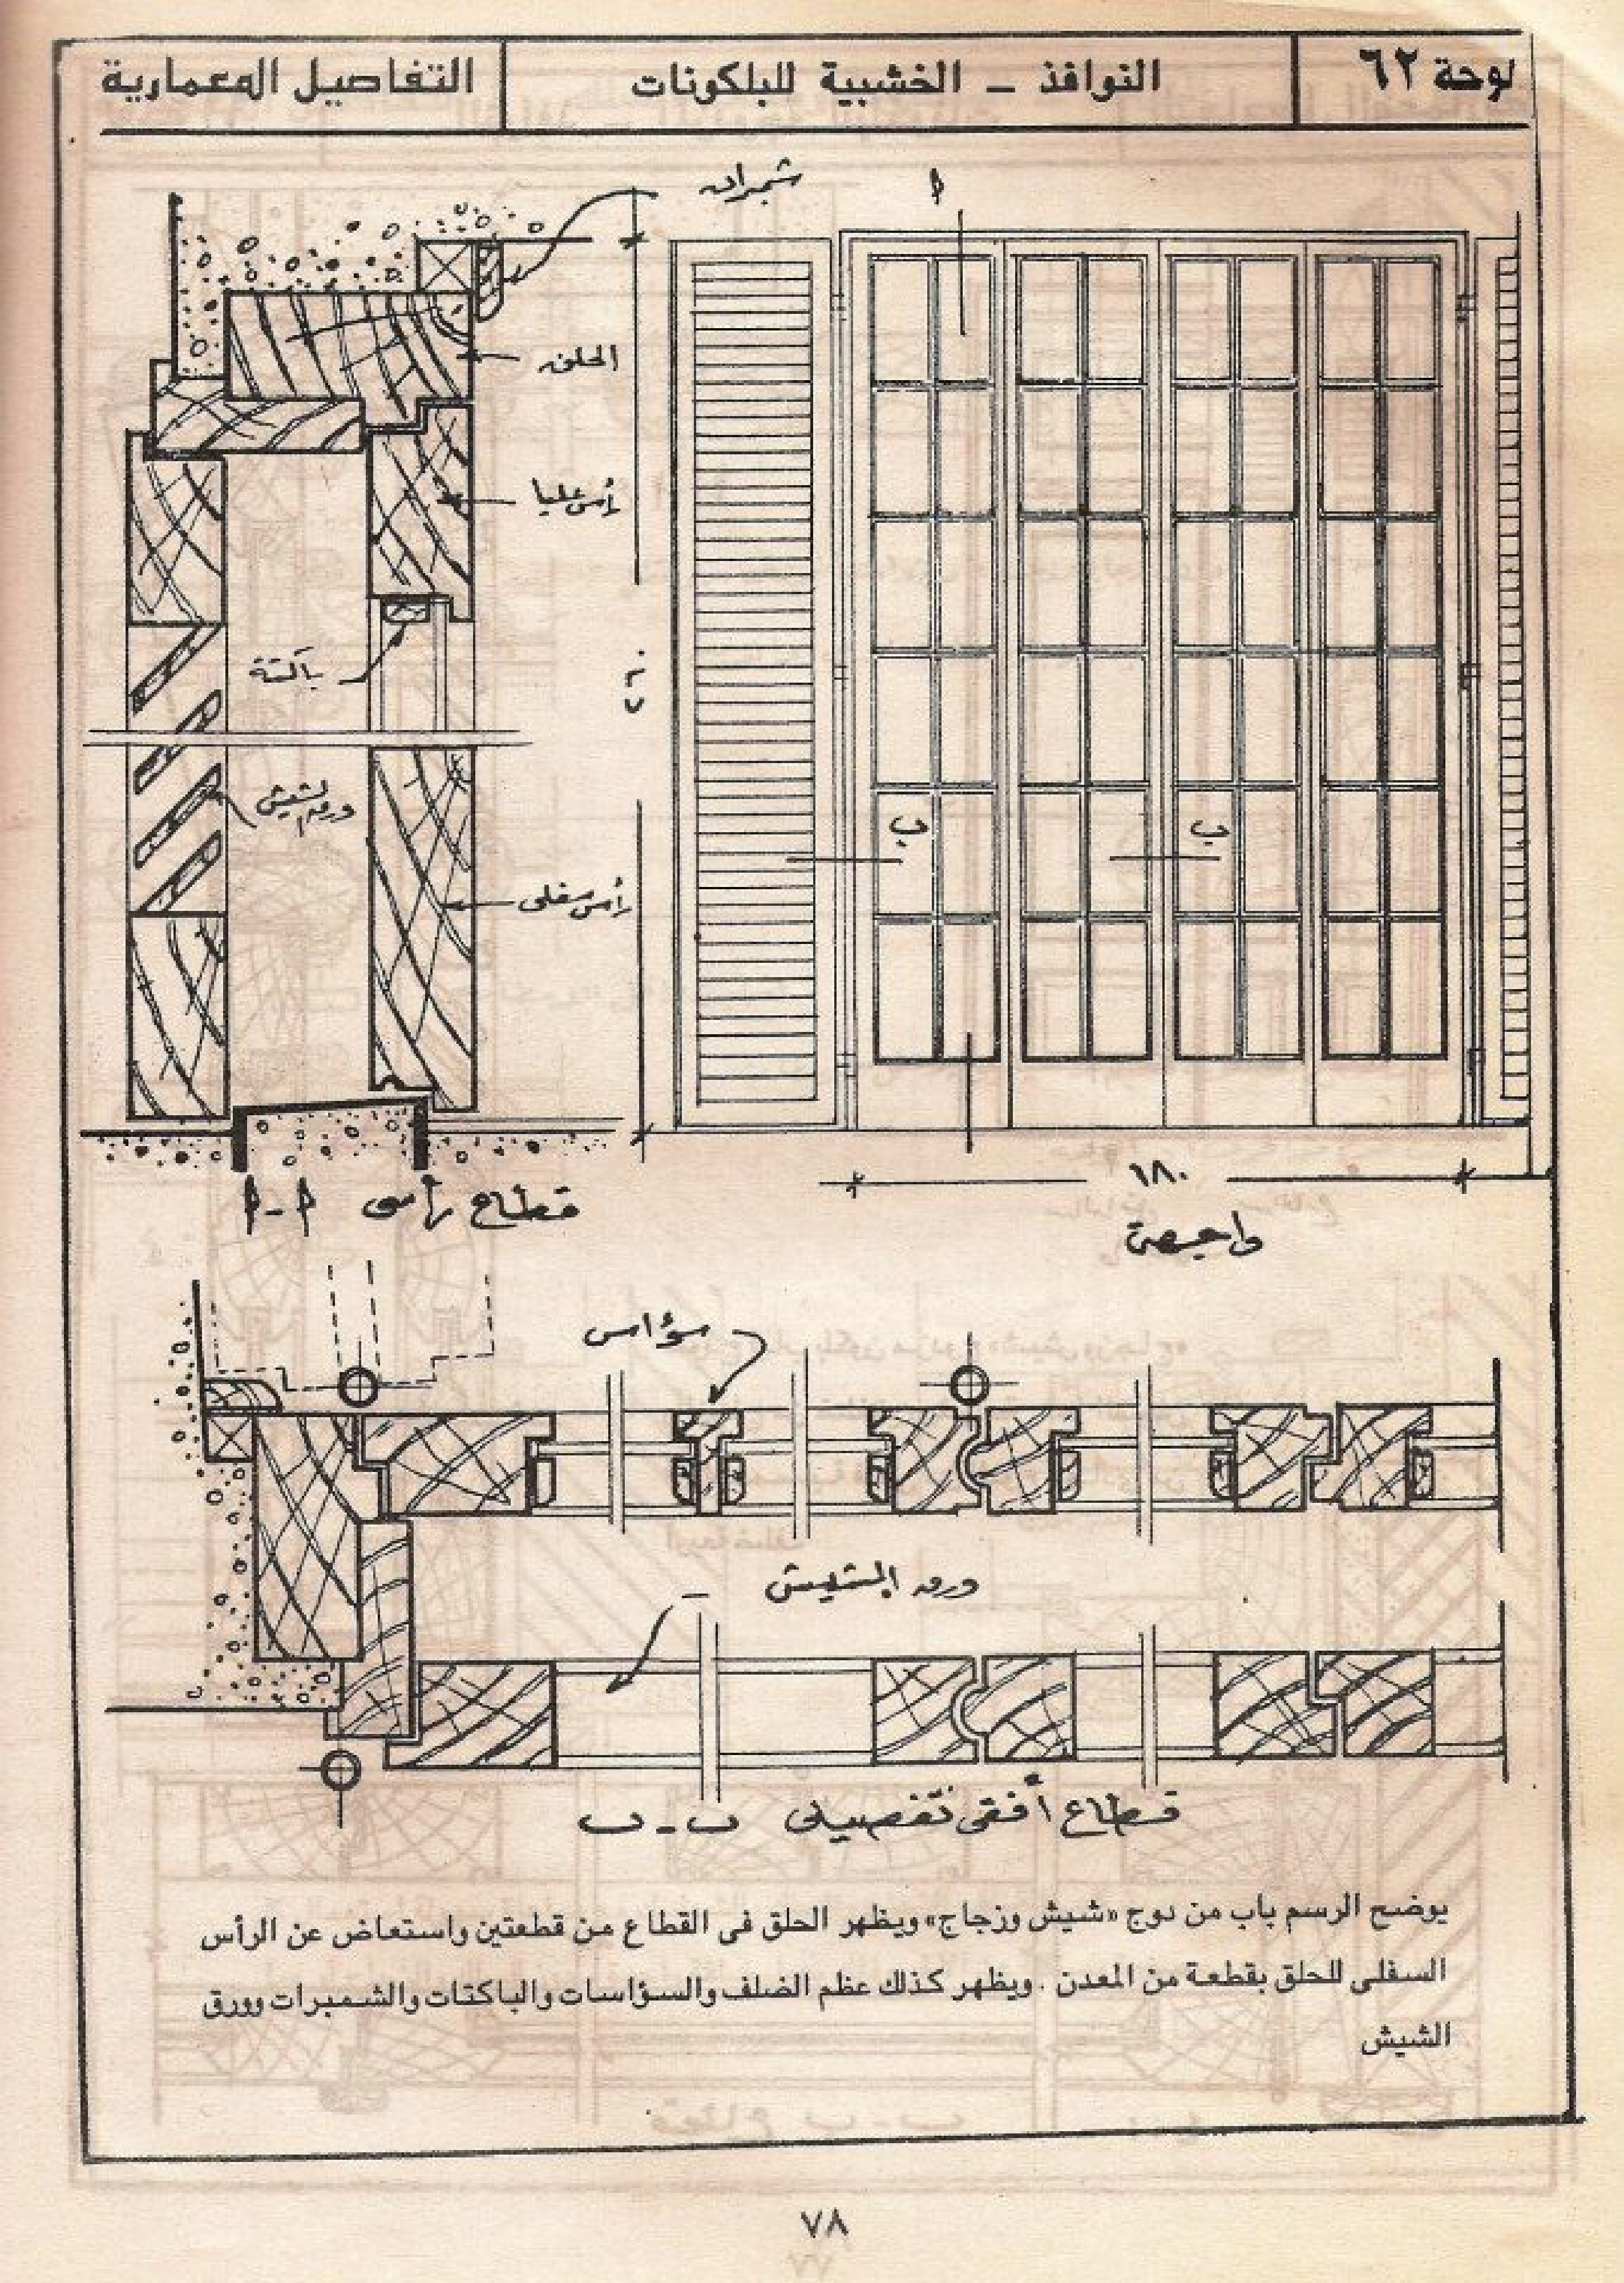 لوحة ٦٢
النوافذ - الخشبية للبلكونات
التفاصيل المعمارية
شمبران
الحلق
رأس عليا
باكتة
ورق الشيش
رأس سفلى
٢٢٠
أ
ب
ب
١٨٠
واجهة
قطاع رأسى أ-أ
سؤاس
ورق الشيش
قطاع أفقى تفصيلى ب-ب
يوضح الرسم باب من نوج «شيش وزجاج» ويظهر الحلق فى القطاع من قطعتين واستعاض عن الرأس
السفلى للحلق بقطعة من المعدن . ويظهر كذلك عظم الضلف والسؤاسات والباكتات والشمبرات وورق
الشيش
٧٨